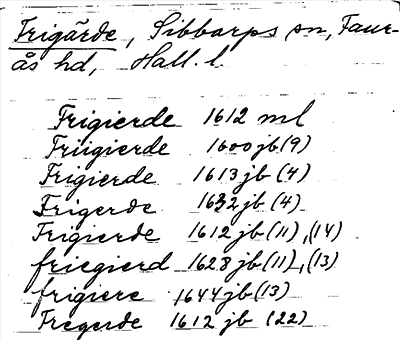 Frigärde, Sibbarps sn, Faur-
ås hd, Hall. l.
Frigierde 1612 ml
Friigierde 1600 jb (9)
Frigierde 1613 jb (4)
Frigerde 1632 jb (4)
Frigierde 1612 jb (11), (14)
friegierd 1628 jb (11), (13)
frigiere 1644 jb (13)
Fregerde 1612 jb (22)